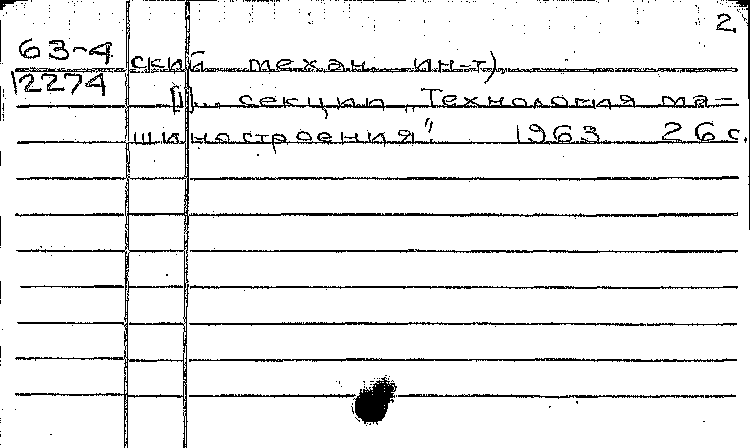 2.
63-4
12274
ский механ. ин-т).
[1]. .. секции „Технология ма-
шиностроения". 1963 26 с.